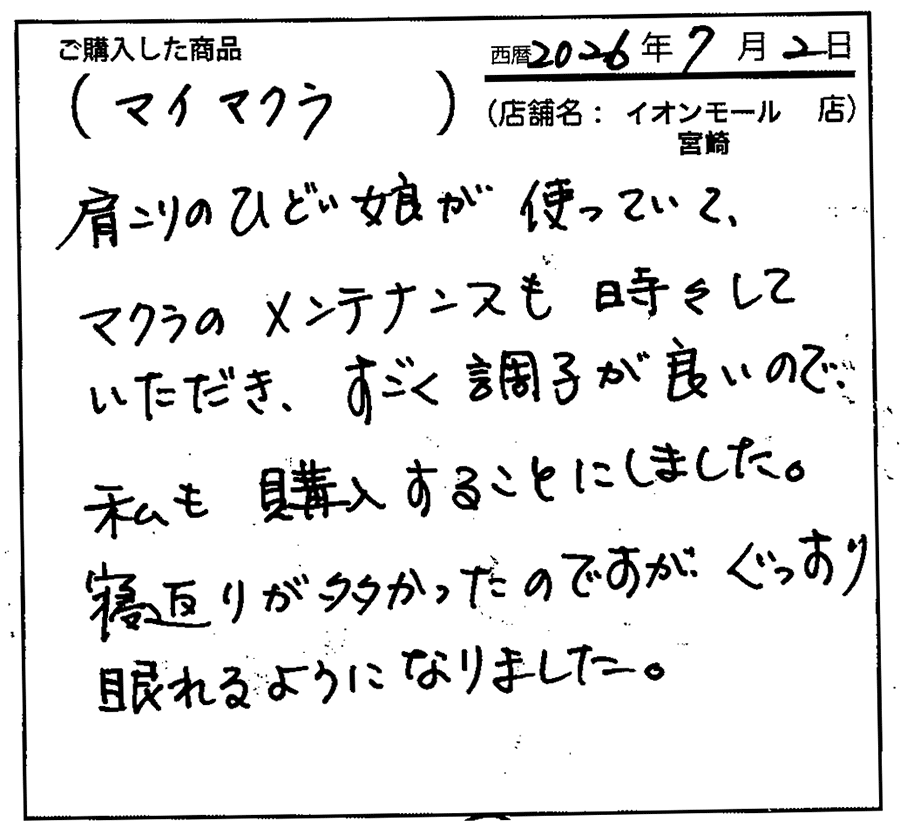 ご購入した商品
(マイマクラ)
西暦2026年7月2日
(店舗名：イオンモール 店)
宮崎
肩こりのひどい娘が使っていて、
マクラのメンテナンスも時々して
いただき、すごく調子が良いので、
私も購入することにしました。
寝返りが多かったのですが、ぐっすり
眠れるようになりました。